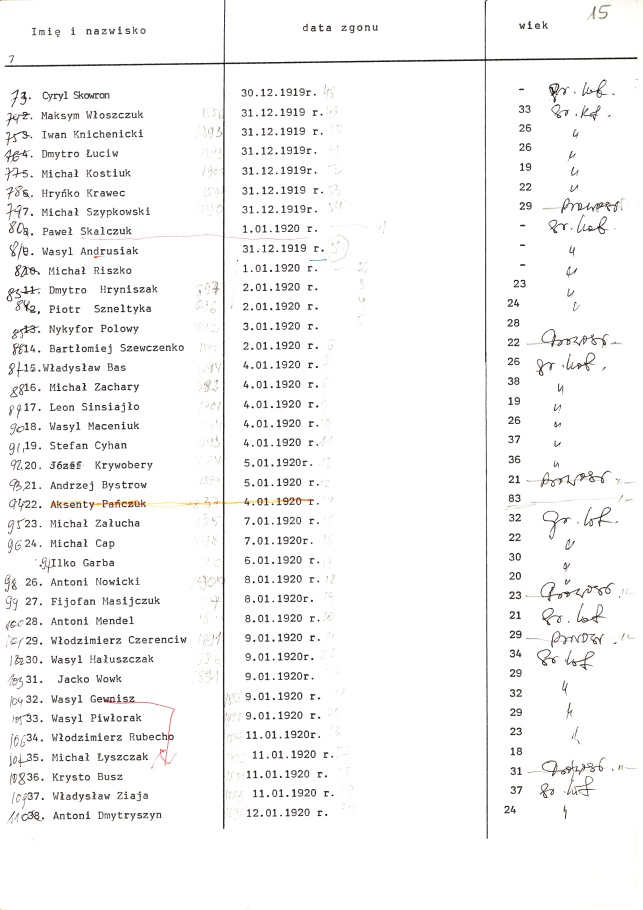 15
Imię i nazwisko data zgonu wiek
7
73. Cyryl Skowron 30.12.1919r. - gr. kat.
742. Maksym Włoszczuk 31.12.1919 r. 33 gr. kat.
753. Iwan Knichenicki 1893 31.12.1919 r. 26 "
764. Dmytro Łuciw 31.12.1919r. 26 "
775. Michał Kostiuk 31.12.1919 r. 19 "
786. Hryńko Krawec 31.12.1919 r. 22 "
797. Michał Szypkowski 31.12.1919r. 29 prawosł.
808. Paweł Skalczuk 1.01.1920 r. - gr. kat. 1
819. Wasyl Andrusiak 31.12.1919 r. - "
8210. Michał Riszko 1.01.1920 r. - "
8311. Dmytro Hryniszak 2.01.1920 r. 23 "
8412, Piotr Szneltyka 2.01.1920 r. 24 "
8513. Nykyfor Polowy 3.01.1920 r. 28
8614. Bartłomiej Szewczenko 2.01.1920 r. 22 prawosł. "
8715.Władysław Bas 4.01.1920 r. 26 gr. kat.
8816. Michał Zachary 4.01.1920 r. 38 "
8917. Leon Sinsiajło 4.01.1920 r. 19 "
9018. Wasyl Maceniuk 4.01.1920 r. 26 "
91,19. Stefan Cyhan 4.01.1920 r. 37 "
92.20. Józef Krywobery 5.01.1920r. 36 "
93,21. Andrzej Bystrow 5.01.1920 r. 21 prawosł. "
9422. Aksenty Pańczuk 4.01.1920 r. 83
9523. Michał Załucha 7.01.1920 r. 32 gr. kat.
96 24. Michał Cap 7.01.1920r. 22 "
97 Ilko Garba 6.01.1920 r. 30 "
98 26. Antoni Nowicki 1900 8.01.1920 r. 20 "
99 27. Fijofan Masijczuk 8.01.1920r. 23 prawosł. "
10028. Antoni Mendel 8.01.1920 r. 21 gr. kat
10129. Włodzimierz Czerenciw 9.01.1920 r. 29 prawosł. "
10230. Wasyl Hałuszczak 9.01.1920r. 34 gr kat
10331. Jacko Wowk 9.01.1920r. 29
10432. Wasyl Gewnisz 9.01.1920 r. 32 "
10533. Wasyl Piwłorak 9.01.1920 r. 29 "
10634. Włodzimierz Rubecho 11.01.1920r. 23 "
10735. Michał Łyszczak 11.01.1920 r. 18
10836. Krysto Busz 11.01.1920 r. 31 prawosł. "
10937. Władysław Ziaja 11.01.1920 r. 37 gr. kat
11038. Antoni Dmytryszyn 12.01.1920 r. 24 "